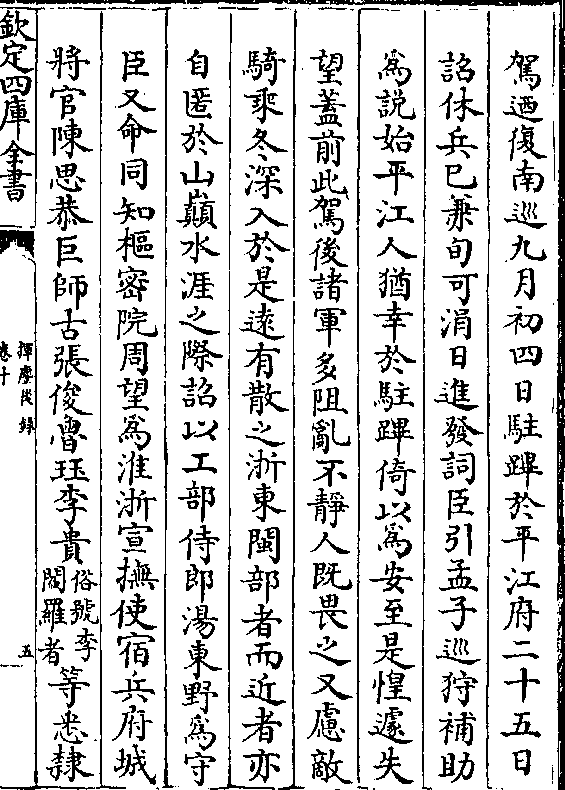 駕迺復南巡九月初四日駐蹕於平江府二十五日
詔休兵已兼旬可涓日進發詞臣引孟子巡狩補助
為説始平江人猶幸於駐蹕倚以為安至是惶遽失
望蓋前此駕後諸軍多阻亂不静人既畏之又慮敵
騎乘冬深入於是逺有散之浙東閩部者而近者亦
自匿於山巔水涯之際詔以工部侍郎湯東野為守
臣又命同知樞密院周望為淮浙宣撫使宿兵府城
將官陳思恭巨師古張俊魯珏李貴俗號李閻羅者等悉隸
欽定四庫全書
揮麈後録
卷十
五